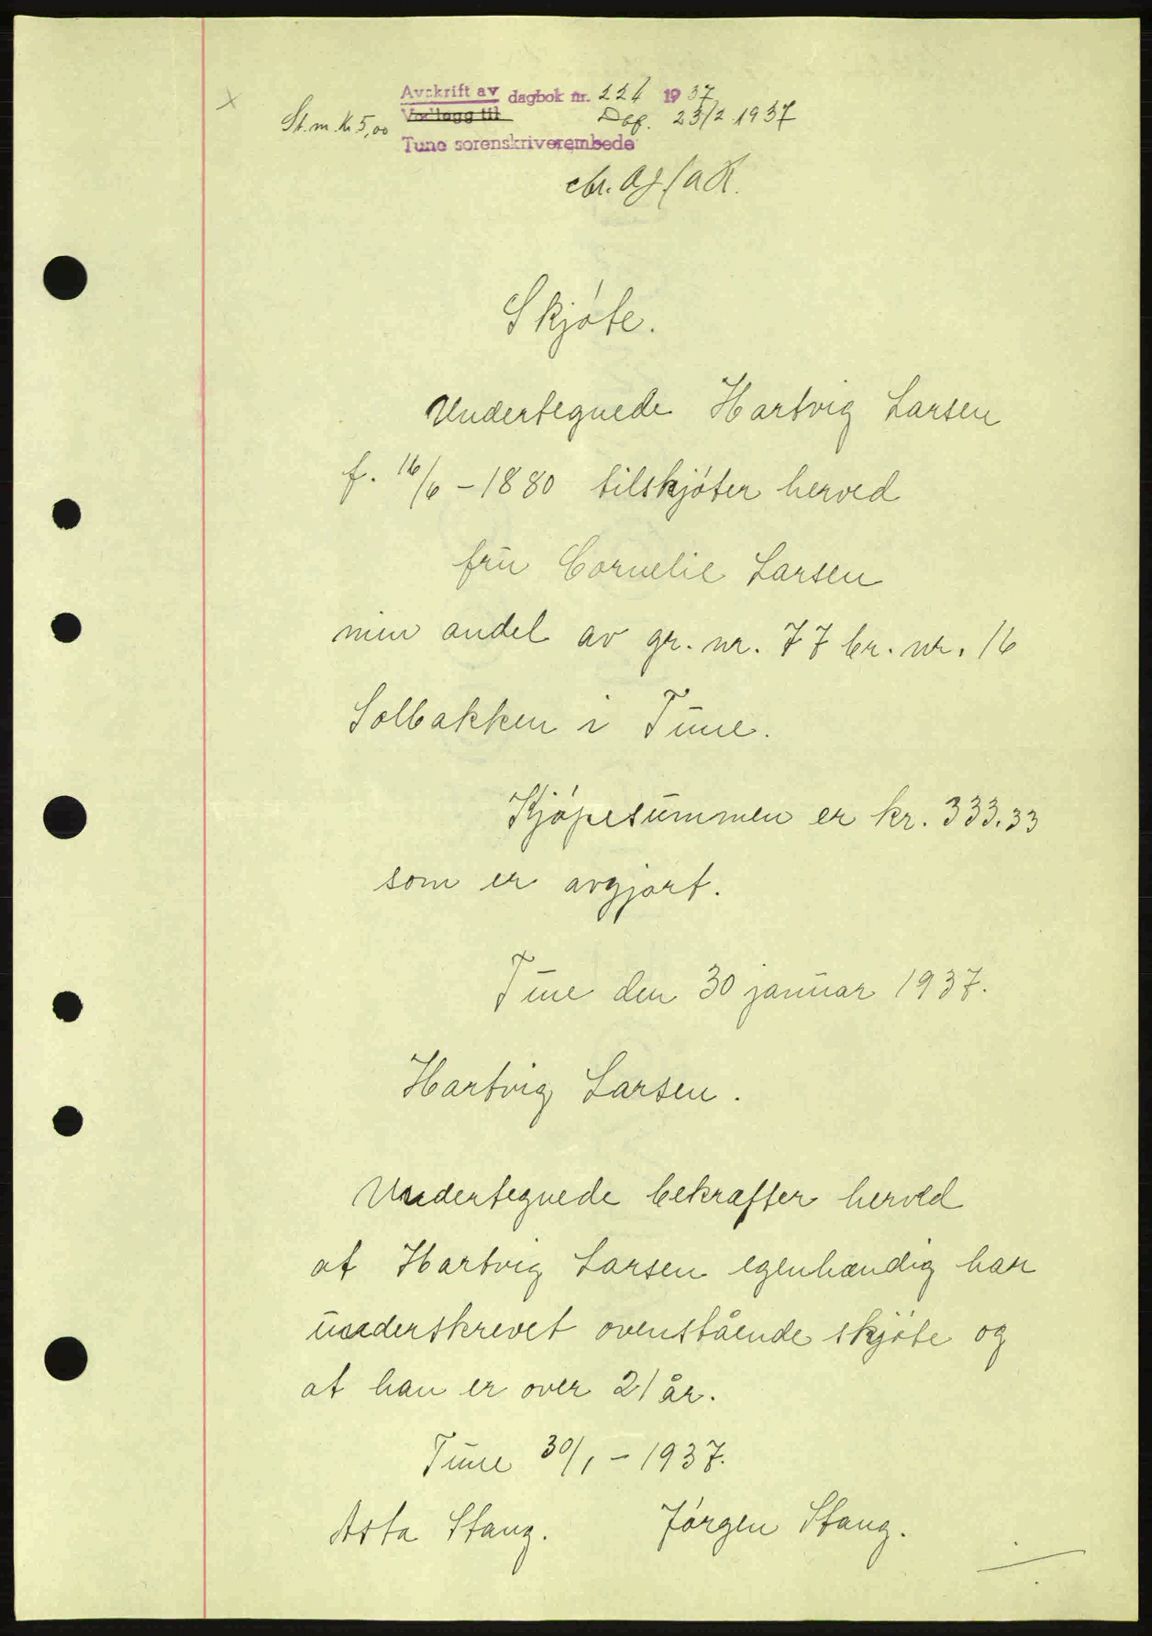 Avskrift av dagbok nr. 226 1937
Vedlegg til
Dbf. 23/2 1937
St.m. Kr 5,00
Tune sorenskriverembede
Skjøte.
Undertegnede Hartvig Larsen
f. 16/6 - 1880 tilskjøter herved
fru Cornelie Larsen
min andel av gr. nr. 77 br. nr. 16
Solbakken i Tune.
Kjøpesummen er kr. 333.33
som er avgjort.
Tune den 30 januar 1937.
Hartvig Larsen.
Undertegnede bekræfter herved
at Hartvig Larsen egenhændig har
underskrevet ovenstående skjøte og
at han er over 21 år.
Tune 30/1 - 1937.
Asta Stang. Jørgen Stang.